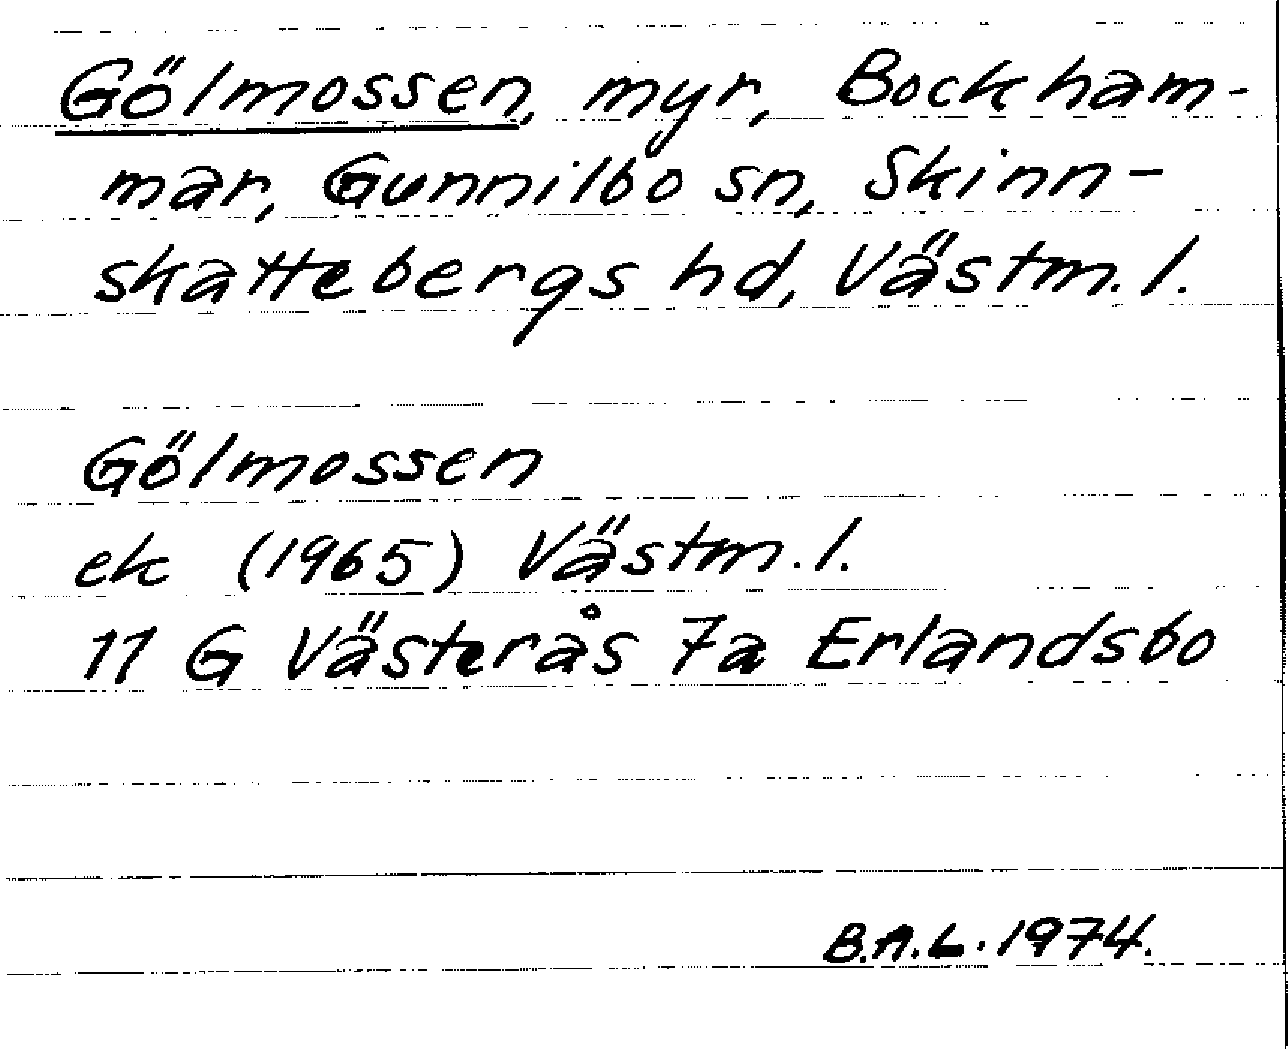 Gölmossen, myr, Bockham-
mar, Gunnilbo sn, Skinn-
skattebergs hd, Västm. l.
Gölmossen
ek (1965) Västm. l.
11 G Västerås 7a Erlandsbo
B.A.L. 1974.